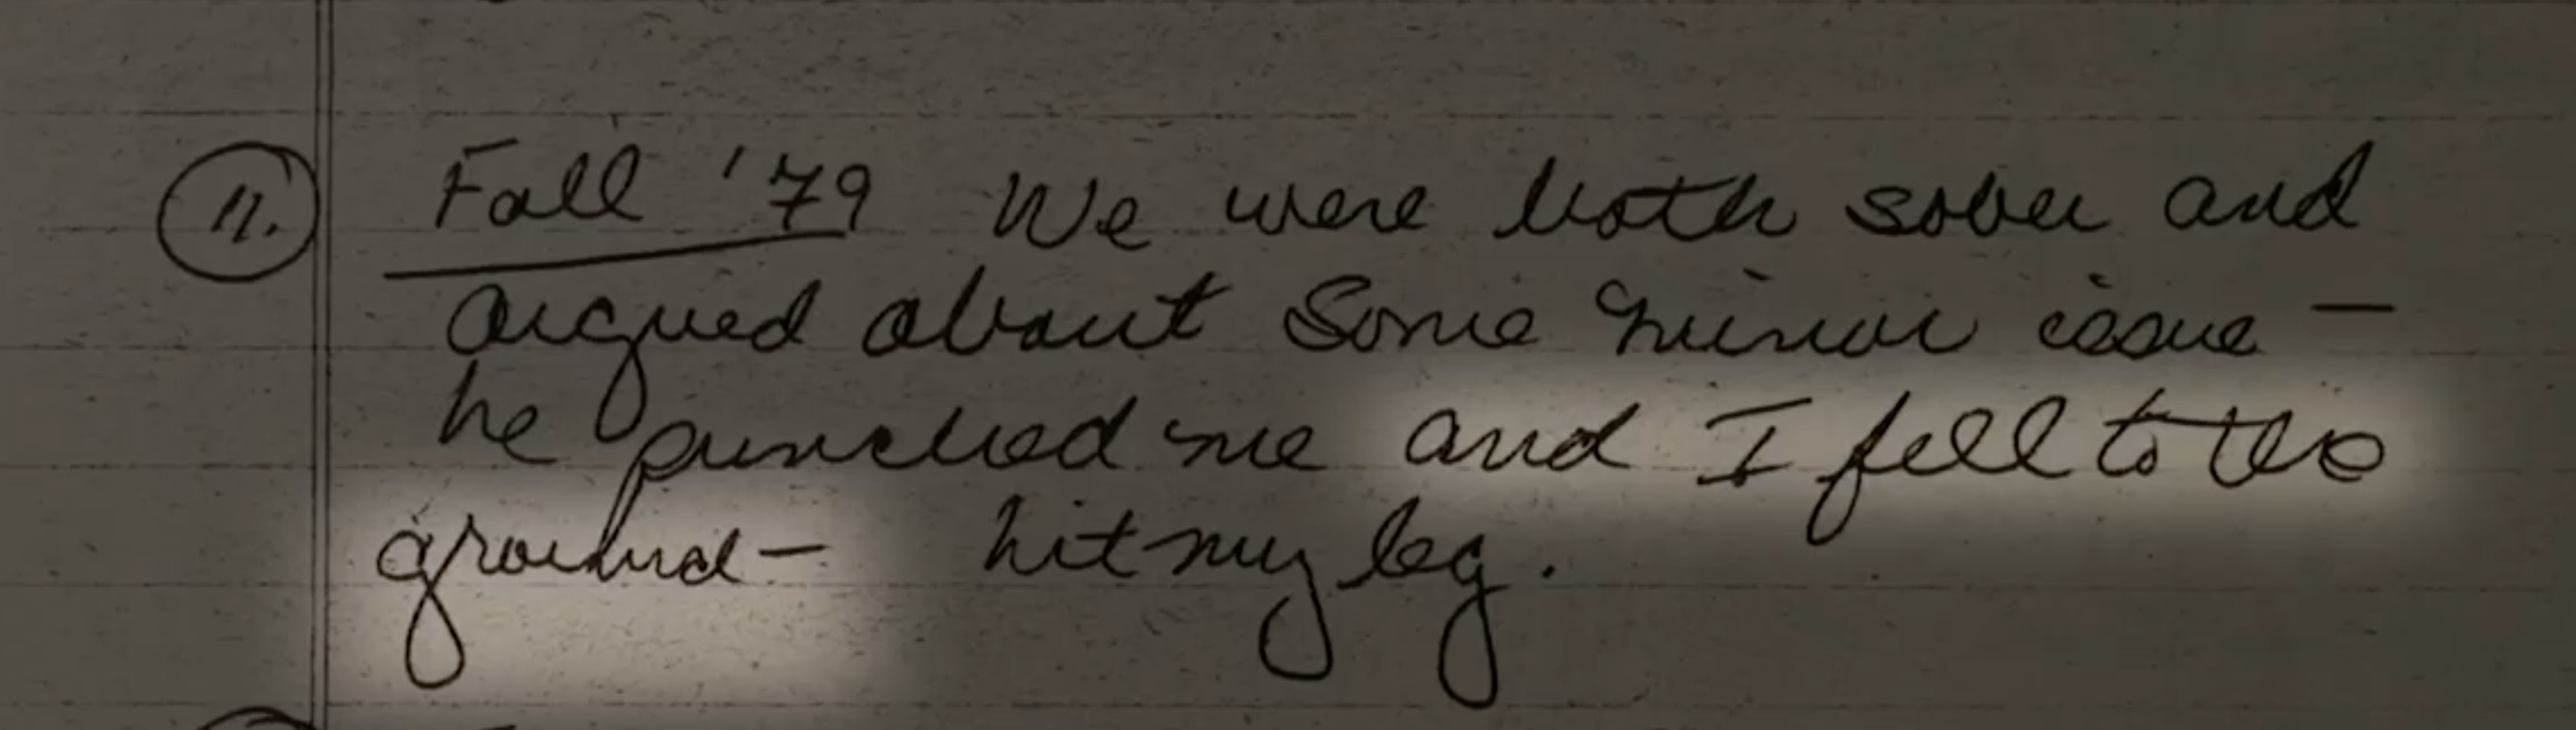 11. Fall '79 We were both sober and
argued about some minor issue —
he punched me and I fell to the
ground — hit my leg.